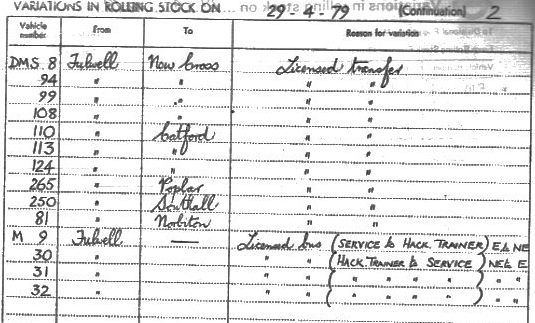 VARIATIONS IN ROLLING STOCK ON 29-4-79 (Continuation) 2
Vehicle number From To Reason for variation
DMS. 8 Fulwell New Cross Licensed transfer
94 " " " "
99 " " " "
108 " " " "
110 " Catford " "
113 " " " "
124 " " " "
265 " Poplar " "
250 " Southall " "
81 " Norbiton " "
M 9 Fulwell — Licensed bus (SERVICE to HACK. TRAINER) E & NE
30 " " " (HACK. TRAINER to SERVICE) NE & E
31 " " " ( " " " " ) " "
32 " " " ( " " " " ) " "